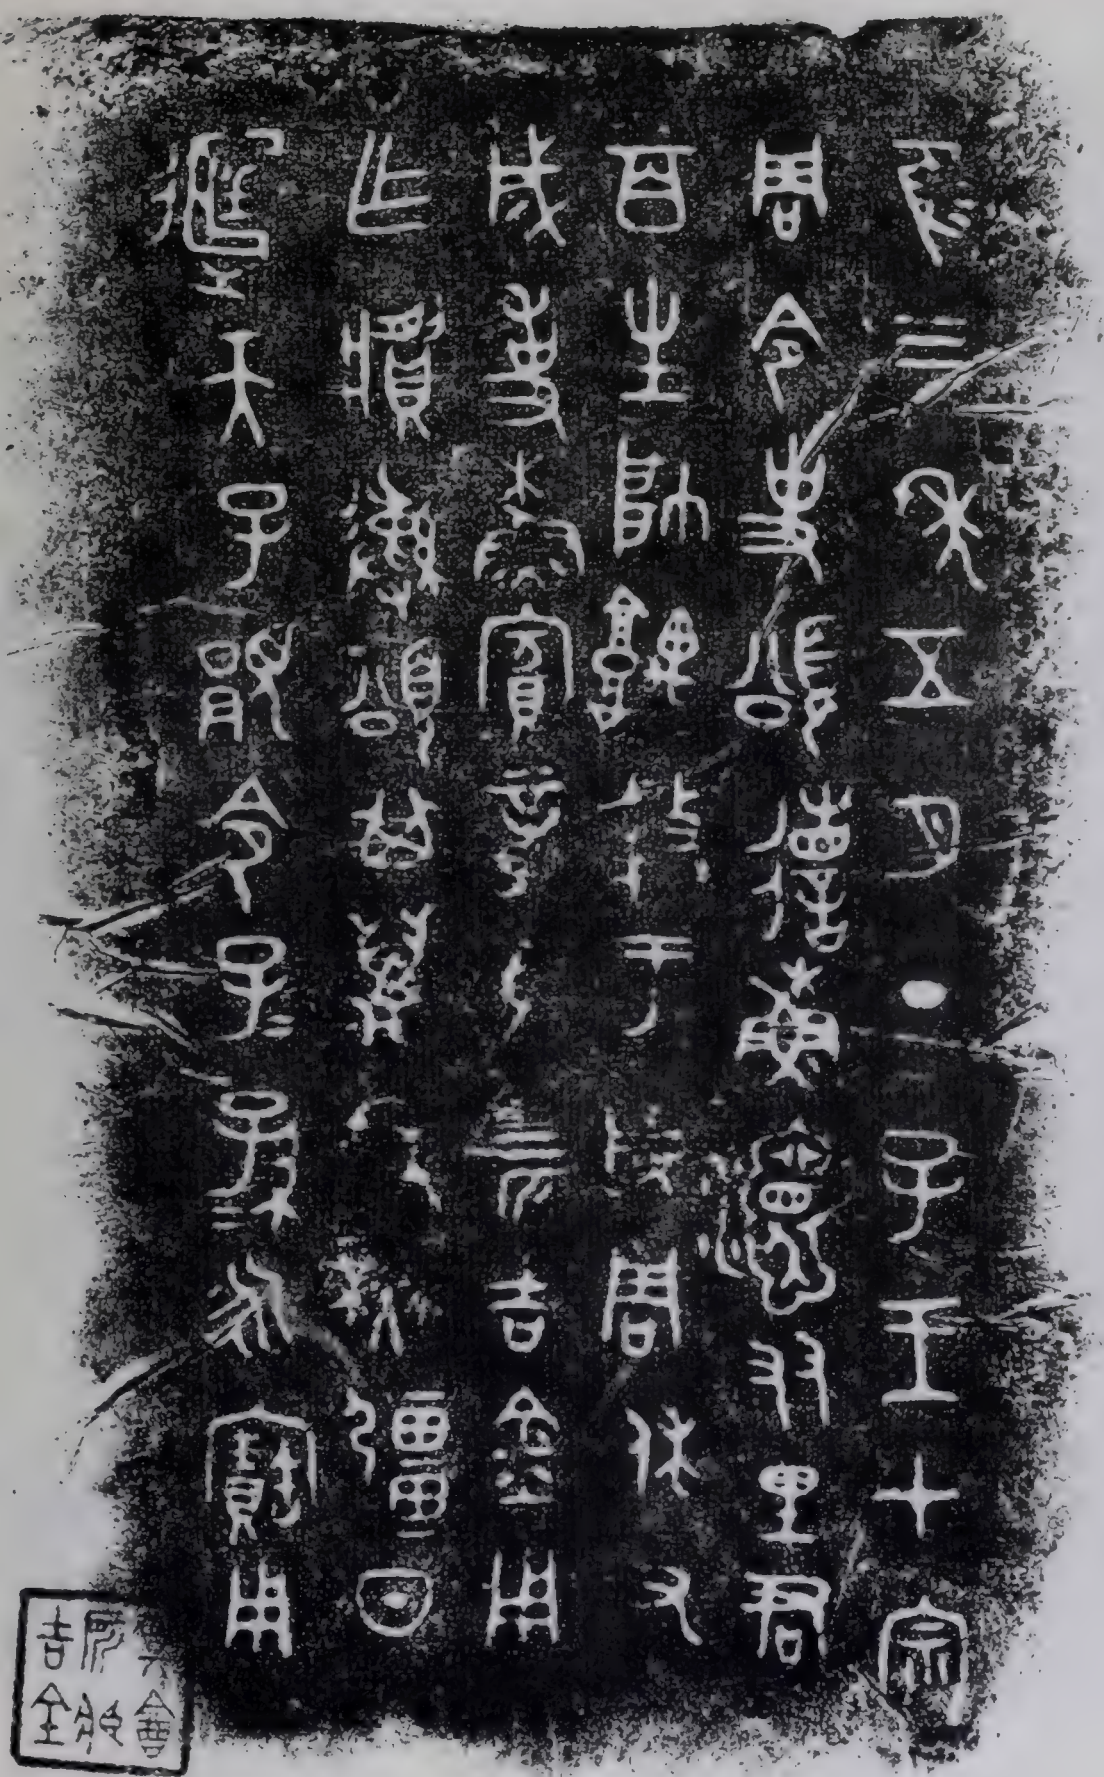 隹三年五月丁子王才宗
周令史頌𥛚穌友里君
百生帥堣盩于成周休又
成事穌賓章馬亖匹吉金用
乍䵼彝頌其萬年無疆日
天子令子=孫=永寶用